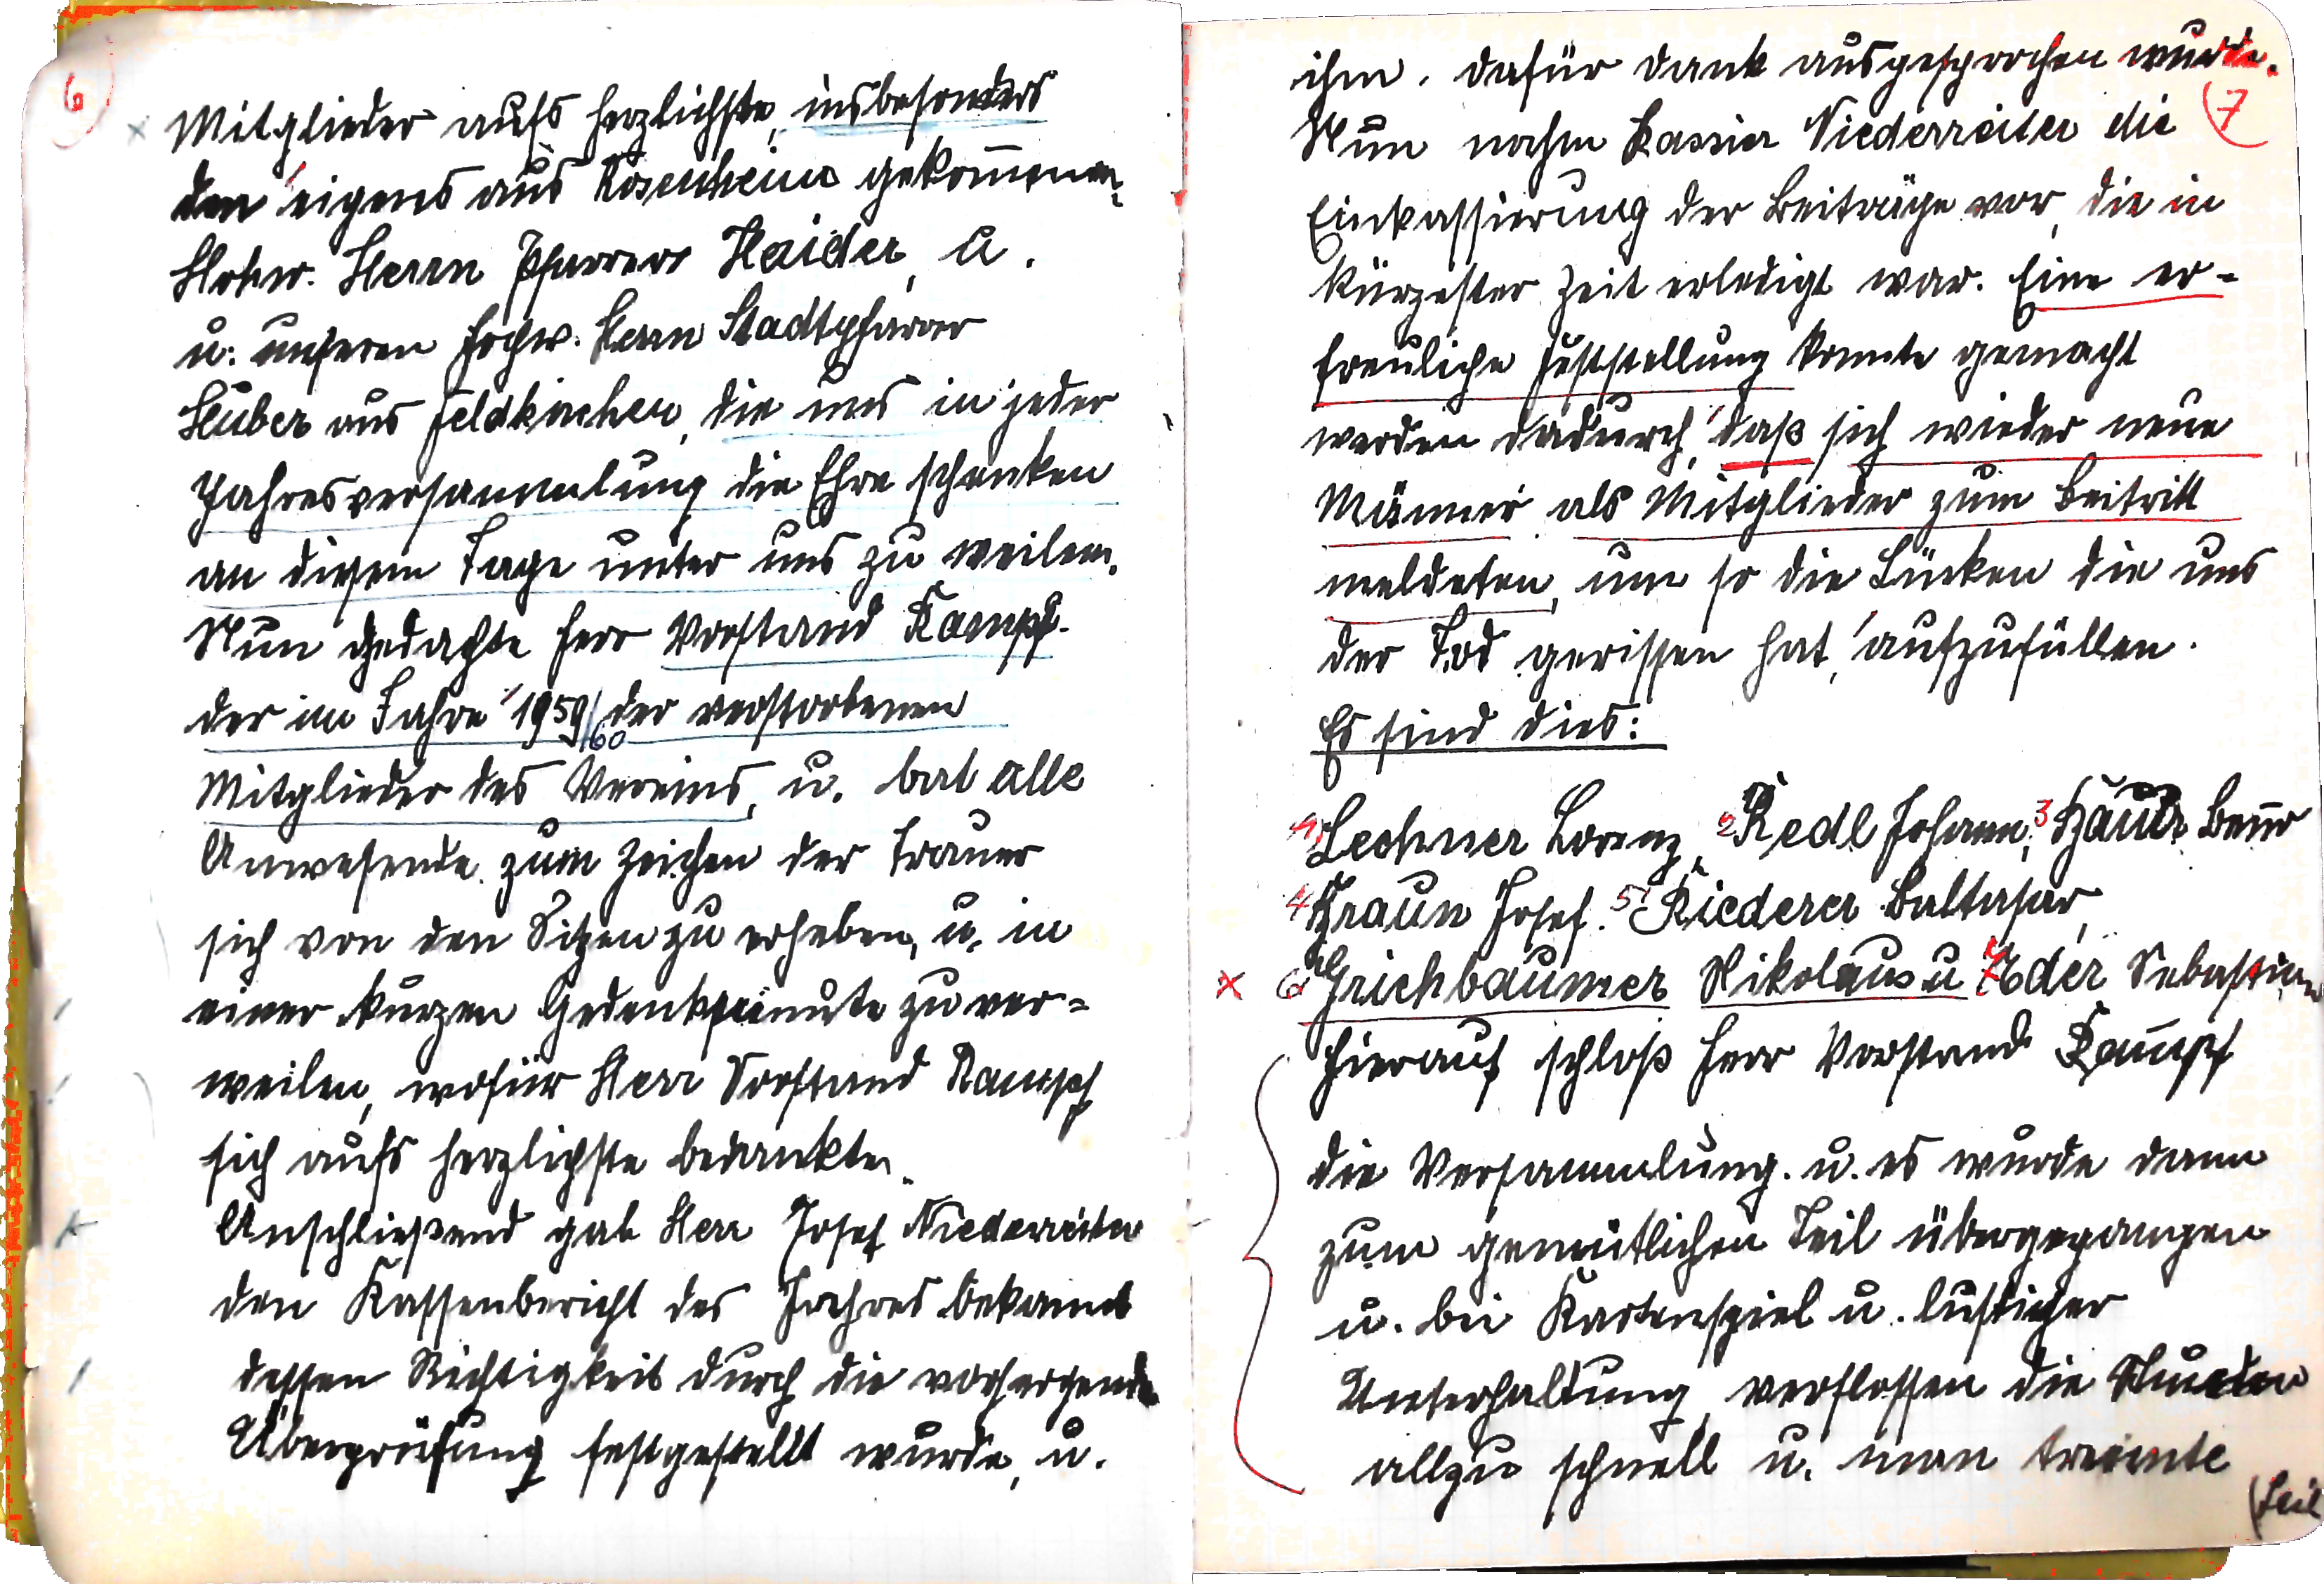 6
Mitglieder aufs herzlichste, insbesonders
den eigens aus Rosenheim gekommenen
Hohw. Herrn Pfarrer Haider, u.
u. unseren hochw. Herrn Stadtpfarrer
Huber aus Feldkirchen, die uns in jeder
Jahresversammlung die Ehre schenken
an diesem Tage unter uns zu weilen.
Nun gedachte Herr Vorstand Kampf
der im Jahre 1959/60 der verstorbenen
Mitglieder des Vereins, u. bat alle
Anwesende zum Zeichen der Trauer
sich von den Sitzen zu erheben, u. in
einer kurzen Gedenkminute zu ver=
weilen, wofür Herr Vorstand Kampf
sich aufs herzlichste bedankte.
Anschließend gab Herr Josef Niederreiter
den Kassenbericht des Jahres bekannt
dessen Richtigkeit durch die vorhergehende
Überprüfung festgestellt wurde, u.
ihm. dafür dank ausgesprochen wurde.
7
Nun nahm Kassier Niederreiter die
Einkassierung der Beiträge vor, die in
kürzester Zeit erledigt war. Eine er=
freuliche Feststellung konnte gemacht
werden dadurch, daß sich wieder neue
Männer als Mitglieder zum Beitritt
meldeten, um so die Lücken die uns
der Tod gerissen hat, aufzufüllen.
Es sind dies:
1 Lechner Lorenz, 2 Redl Johann, 3
4 Braun Josef. 5 Riederer Baltasar,
x 6 Grichbaumer Nikolaus u 7 Eder Sebastian
Hierauf schloß Herr Vorstand Kampf
die Versammlung. u. es wurde dann
zum gemütlichen Teil übergegangen
u. bei Kartenspiel u. lustiger
Unterhaltung, verflossen die Stunden
allzu schnell u. man trennte